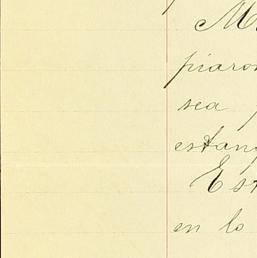 M
piaron
sea
estan
Est
en lo